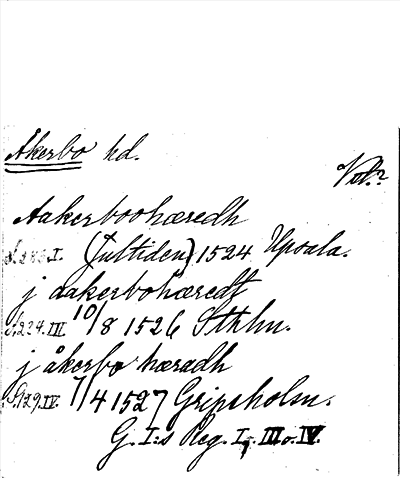 Åkerbo hd.
Vstm.?
Aakerboohæredh
s. 283. I. (Jultiden) 1524 Upsala.
j aakerbohæredt
S. 224. III. 10/8 1526 Sthlm.
j åkerbo hæradh
S. 129. IV. 7/4 1527 Gripsholm.
G. I:s Reg. I, III o. IV.